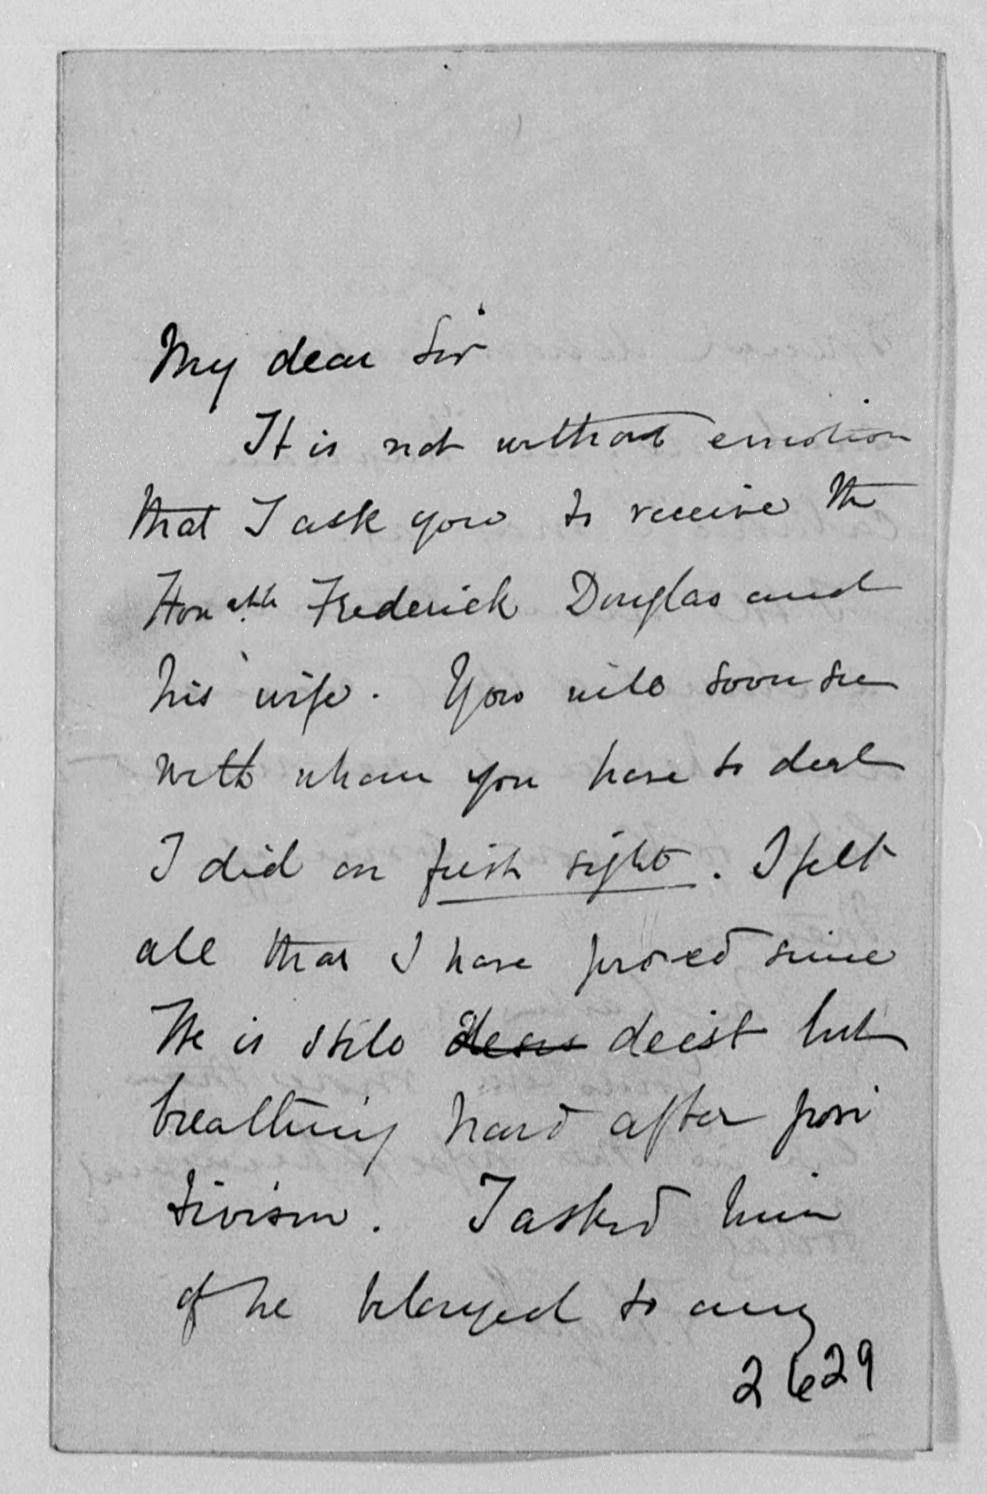 My dear Sir
It is not without emotion
that I ask you to receive the
Honable Frederick Douglas and
his wife. You will soon see
with whom you have to deal
I did on first sight. I felt
all that I have proved since
He is still deist but
breathing hard after posi
tivism. I asked him
if he belonged to any
2629